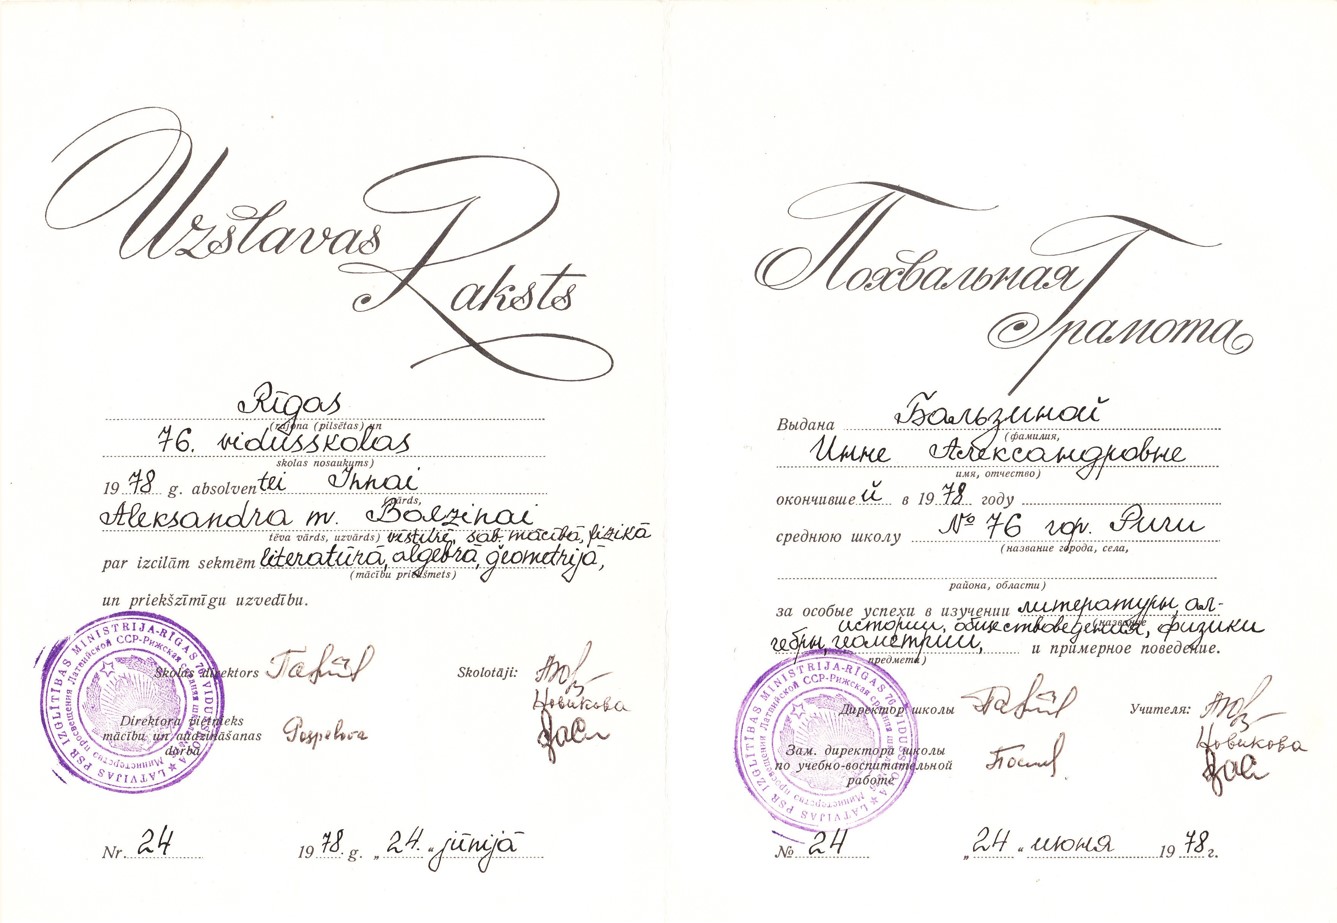 Uzslavas
Raksts
Rīgas
(rajona (pilsētas) un
76. vidusskolas
skolas nosaukums)
1978 g. absolventei Innai
(vārds,
Aleksandra m. Balzinai
tēva vārds, uzvārds) vēsturē, sab. mācībā, fizikā
par izcilām sekmēm literatūrā, algebrā, ģeometrijā,
(mācību priekšmets)
un priekšzīmīgu uzvedību.
Skolas direktors
Skolotāji:
Новикова
Direktora vietnieks
mācību un audzināšanas
darbā
Pospelova
LATVIJAS PSR IZGLĪTĪBAS MINISTRIJA-RĪGAS 76. VIDUSSKOLA
Министерство просвещения Латвийской ССР-Рижская средняя школа
Nr. 24 1978. g. „24.“ jūnijā
Похвальная
Грамота
Выдана Бальзиной
(фамилия,
Инне Александровне
имя, отчество)
окончившей в 1978 году
среднюю школу № 76 гор. Риги
(название города, села,
района, области)
за особые успехи в изучении литературы, ал-
(название
истории, обществоведения, физики
гебры, геометрии, и примерное поведение.
предмета)
Директор школы
Учителя:
Новикова
Зам. директора школы
по учебно-воспитательной
работе
LATVIJAS PSR IZGLĪTĪBAS MINISTRIJA-RĪGAS 76. VIDUSSKOLA
Министерство просвещения Латвийской ССР-Рижская средняя школа
№ 24 „24“ июня 1978 г.